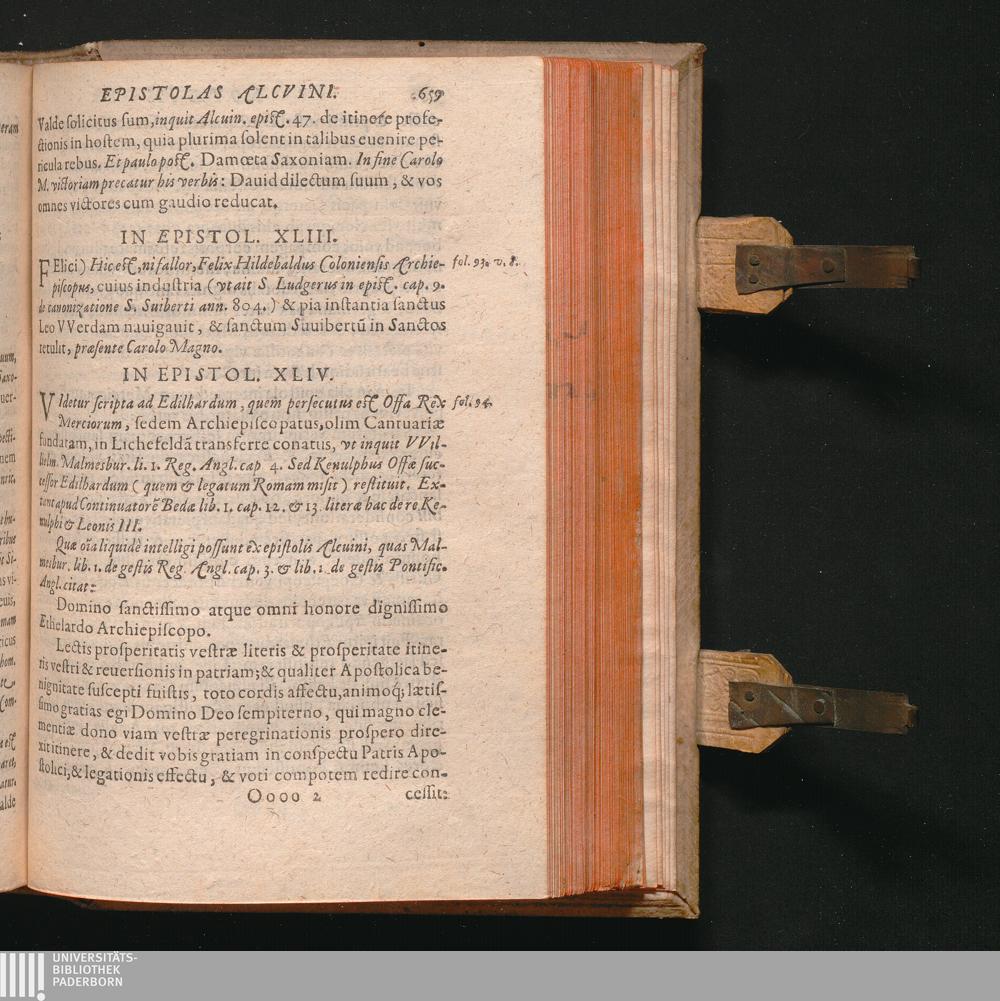 EPISTOLAS ALCVINI. 659
Valde ſolicitus ſum, inquit Alcuin. epiſt. 47. de itinere profe-
ctionis in hoſtem, quia plurima ſolent in talibus euenire pe-
ricula rebus. Et paulo poſt. Damœta Saxoniam. In fine Carolo
M. victoriam precatur his verbis: Dauid dilectum ſuum, & vos
omnes victores cum gaudio reducat.
IN EPISTOL. XLIII.
FElici) Hic eſt, ni fallor, Felix Hildebaldus Colonienſis Archie- fol. 93. v. 8.
piſcopus, cuius induſtria (vt ait S. Ludgerus in epiſt. cap. 9.
de canonizatione S. Suiberti ann. 804.) & pia inſtantia ſanctus
Leo VVerdam nauigauit, & ſanctum Suuibertũ in Sanctos
retulit, præſente Carolo Magno.
IN EPISTOL. XLIV.
VIdetur ſcripta ad Edilhardum, quem perſecutus eſt Offa Rex fol. 94.
Merciorum, ſedem Archiepiſcopatus, olim Cantuariæ
fundatam, in Lichefeldã transferre conatus, vt inquit VVil-
lielm. Malmesbur. li. 1. Reg. Angl. cap 4. Sed Kenulphus Offæ ſuc-
ceſſor Edilhardum (quem & legatum Romam miſit) reſtituit. Ex-
tant apud Continuatorẽ Bedæ lib. 1. cap. 12. & 13. literæ hac de re Ke-
nulphi & Leonis III.
Quæ oĩa liquidè intelligi poſſunt ex epiſtolis Alcuini, quas Mal-
mesbur. lib. 1. de geſtis Reg. Angl. cap. 3. & lib. 1. de geſtis Pontific.
Angl. citat:
Domino ſanctiſſimo atque omni honore digniſſimo
Ethelardo Archiepiſcopo.
Lectis proſperitatis veſtræ literis & proſperitate itine-
ris veſtri & reuerſionis in patriam; & qualiter Apoſtolica be-
nignitate ſuſcepti fuiſtis, toto cordis affectu, animoq́; lætiſ-
ſimo gratias egi Domino Deo ſempiterno, qui magno cle-
mentiæ dono viam veſtræ peregrinationis proſpero dire-
xit itinere, & dedit vobis gratiam in conſpectu Patris Apo-
ſtolici, & legationis effectu, & voti compotem redire con-
Oooo 2 ceſſit:
UNIVERSITÄTS-
BIBLIOTHEK
PADERBORN